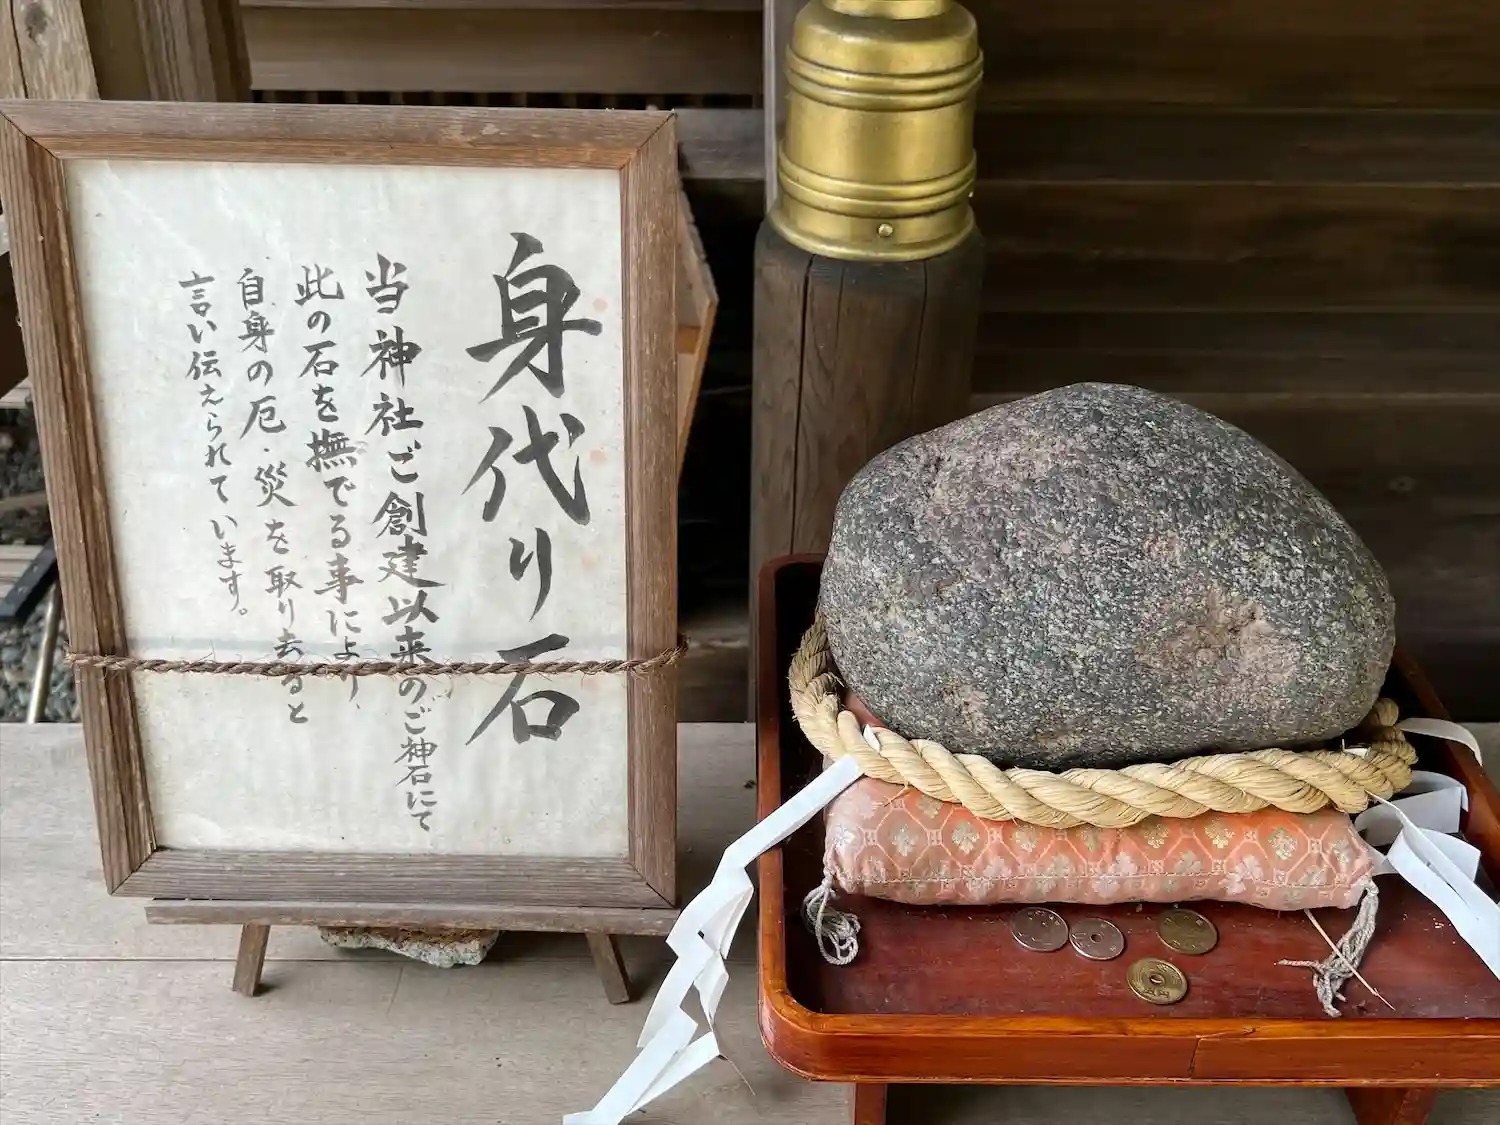 身代り石
当神社ご創建以来のご神石にて
此の石を撫でる事により、
自身の厄・災を取り去ると
言い伝えられています。
五円